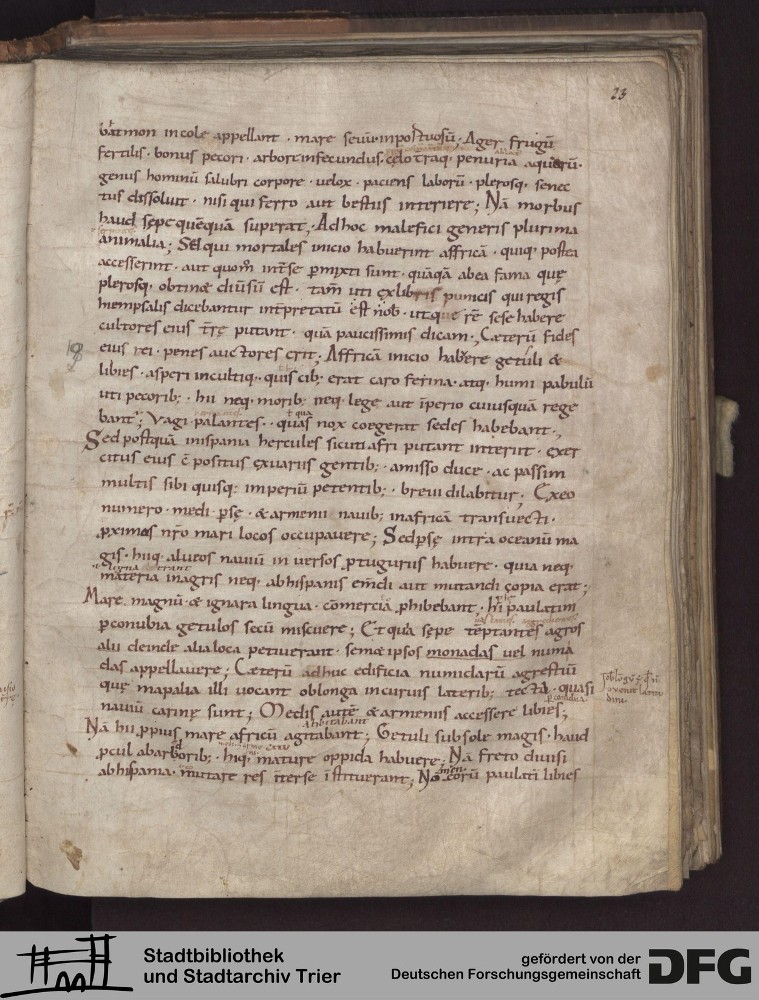 23
batmon incole appellant · mare seuū · inportuosū · Ager frugū
fertilis · bonus pecori · arbori infecundus · celo traq; penuria aquarū ·
genus hominū salubri corpore · uelox · paciens laborū · plerosq; senec
tus dissoluit · nisi qui ferro aut bestiis interiere; Nā morbus
haud sepe quēquā superat; Ad hoc malefici generis plurima
animalia; Sed qui mortales inicio habuerint affricā · quiq; postea
accesserint · aut quom̄ int̄se pmixti sunt · quāqā abea fama quę
plerosq; obtinet diuūsū est · tam̄ uti ęxlibris punicis qui regis
hiempsalis dicebantur int̄pretatū est nob · utque rē sese habere
cultores eius t̄rę putant · quā paucissimis dicam; Cæterū fides
eius rei · penes auctores erit; Affricā inicio habuere getuli &
libies · asperi incultiq; · quis cib; erat caro ferina · atq; humi pabulū
uti pecorib; · hii neq; morib; neq; lege aut īperio cuiusquā rege
bant; uagi palantes · quas nox coegerat sedes habebant ·
Sed postquā inispania hercules sicuti afri putant interiit · exer
citus eius c̄positus ęxuariis gentib; · amisso duce · ac passim
multis sibi quisq; imperiū petentib; · breui dilabitur; Exeo
numero · medi psę · & armenii nauib; inafricā transuecti ·
pximos nr̄o mari locos occupauere; Sed psę intra oceanū ma
gis · hiiq; alueos nauiū in uersos ptuguriis habuere · quia neq;
materia inagris neq; abhispanis em̄di aut mutandi copia erat;
Mare magnū · & ignara lingua · cōmercia phibebant; hi paulatim
pconubia getulos secū miscuere; Et quia sepe tēptantes agros
alii deinde alia loca petiuerant · semet ipsos monadas uel numa
das appellauere; Cæterū adhuc edificia numidarū agrestiū
quę mapalia illi uocant oblonga incuruis laterib; tecta · quasi
nauiū carinę sunt; Medis autē & armeniis accessere libies;
Nā hii ppius mare africū agitabant; Getuli sub sole magis · haud
pcul abardorib; · hiiq; mature oppida habuere; Nā freto diuisi
abhispania · mutare res īterse īstituerant; Nomen corū paulatī libies
Stadtbibliothek
und Stadtarchiv Trier
gefördert von der
Deutschen Forschungsgemeinschaft
DFG